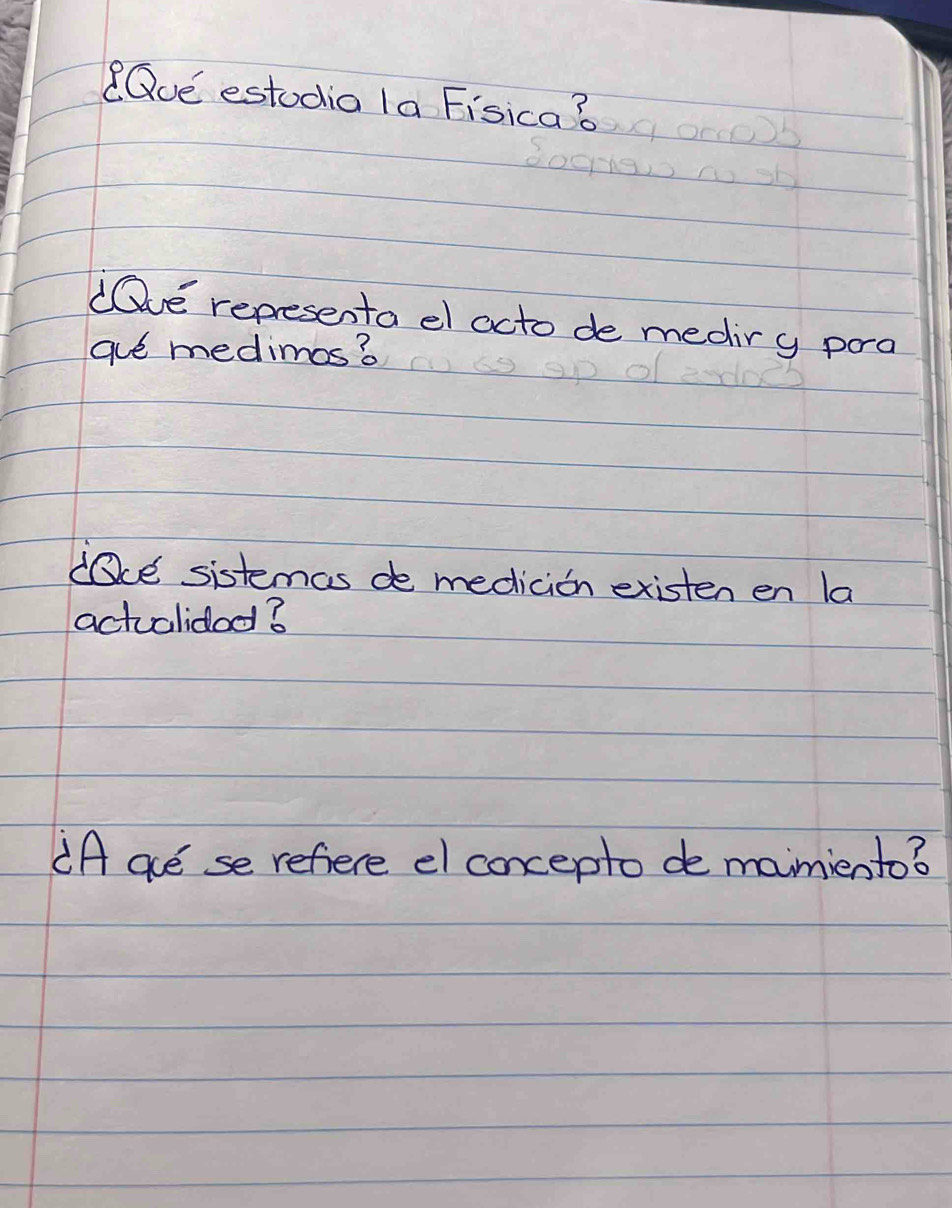 ¿Qué estudia la Física?
¿Qué representa el acto de medir y para
qué medimos?
¿Qué sistemas de medición existen en la
actualidad?
¿A qué se refiere el concepto de movimiento?